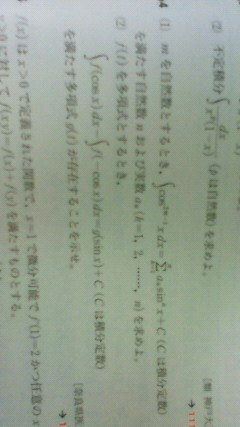 (2) 不定積分∫dx/x^p(1-x) (pは自然数)を求めよ。
(類 神戸大
→11
4 (1) mを自然数とするとき，∫cos^{2m-1}xdx=Σa_k sin^k x+C (Cは積分定数)
を満たす自然数nおよび実数a_k (k=1, 2, ……, n)を求めよ。
(2) f(t)を多項式とするとき，
∫f(cos x)dx-∫f(-cos x)dx=g(sin x)+C (Cは積分定数)
を満たす多項式g(t)が存在することを示せ。
[奈良県医
→1
f(x)はx>0で定義された関数で，x=1で微分可能でf'(1)=2かつ任意のx
に対してf(xy)=f(x)+f(y)を満たすものとする。